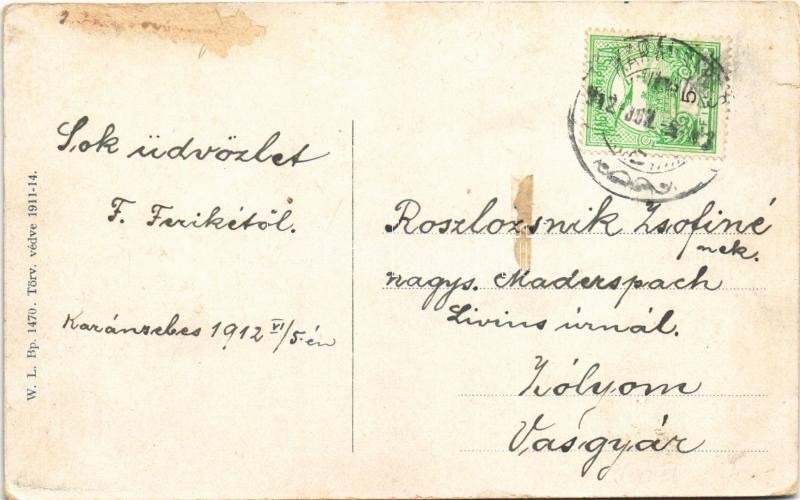 W. L. Bp. 1470. Törv. védve 1911-14.
Sok üdvözlet
F. Ferikétől.
Karánsebes 1912 VI/5-én
Roszlozsnik Zsofiné
nek.
nagys. Maderspach
Livius úrnál.
Zólyom
Vasgyár